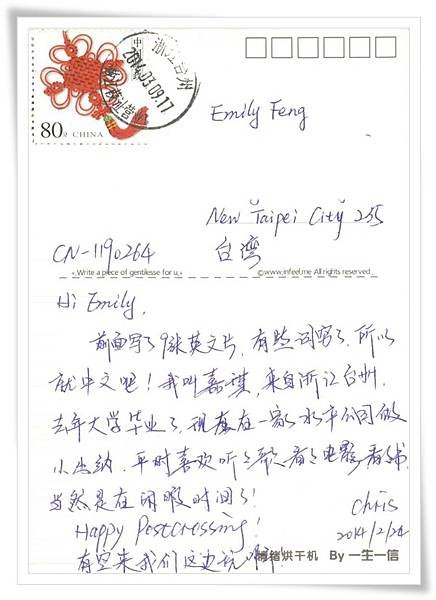 中国邮政
80分 CHINA
浙江台州
2014.03.09.17
Emily Feng
New Taipei City 235
台湾
CN-1190264
Write a piece of gentilesse for u.
©www.infeel.me All rights reserved
Hi Emily,
前面写了9张英文片,有些词穷了,所以
就中文吧!我叫嘉琪,来自浙江台州.
去年大学毕业了,现在在一家水平公司做
小出纳.平时喜欢听听歌看看电影看看书.
当然是在闲暇时间了!
Happy Postcrossing!
Chris
2014/2/24
有空来我们这边玩啊!
博猪烘干机 By 一生一信